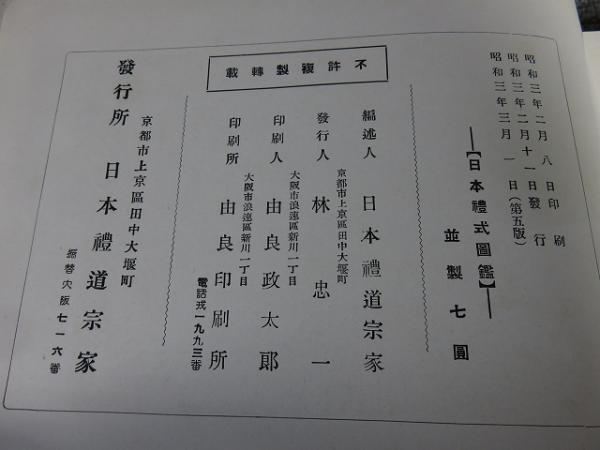 昭和三年二月八日印刷
昭和三年二月十一日發行
昭和三年三月一日(第五版)
【日本禮式圖鑑】
並製七圓
不許複製轉載
編述人 日本禮道宗家
京都市上京區田中大堰町
發行人 林忠一
大阪市浪速區新川一丁目
印刷人 由良政太郎
大阪市浪速區新川一丁目
印刷所 由良印刷所
電話戎一九九三番
京都市上京區田中大堰町
發行所 日本禮道宗家
振替大阪七一六番